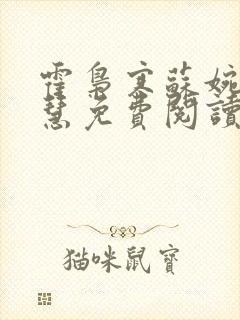 霍梟寒蘇婉
慧免費閱讀
猫咪鼠寶